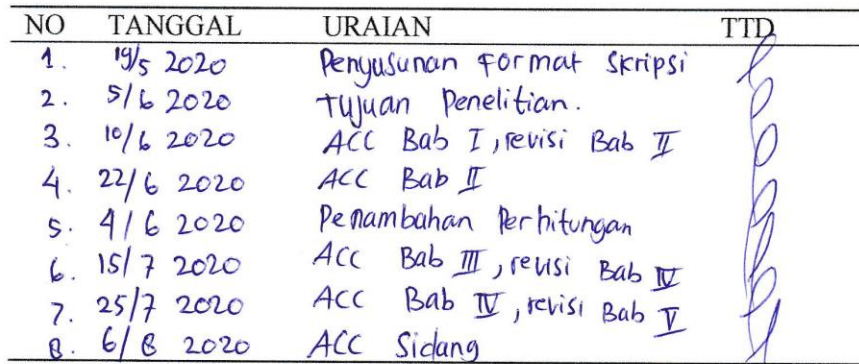 NO TANGGAL URAIAN TTD
1. 19/5 2020 Penyusunan Format Skripsi
2. 5/6 2020 Tujuan Penelitian.
3. 10/6 2020 ACC Bab I, revisi Bab II
4. 22/6 2020 ACC Bab II
5. 4/6 2020 Penambahan Perhitungan
6. 15/7 2020 ACC Bab III, revisi Bab IV
7. 25/7 2020 ACC Bab IV, revisi Bab V
8. 6/8 2020 ACC Sidang